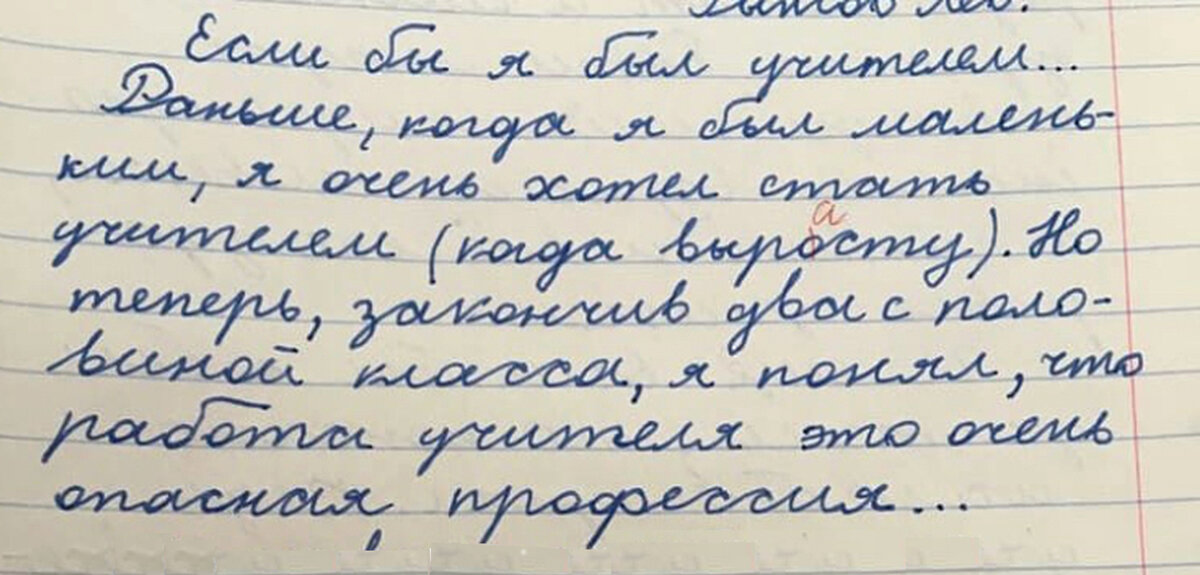 Если бы я был учителем...
Раньше, когда я был малень-
ким, я очень хотел стать
а
учителем (когда выросту). Но
теперь, закончив два с поло-
виной класса, я понял, что
работа учителя это очень
опасная, профессия...